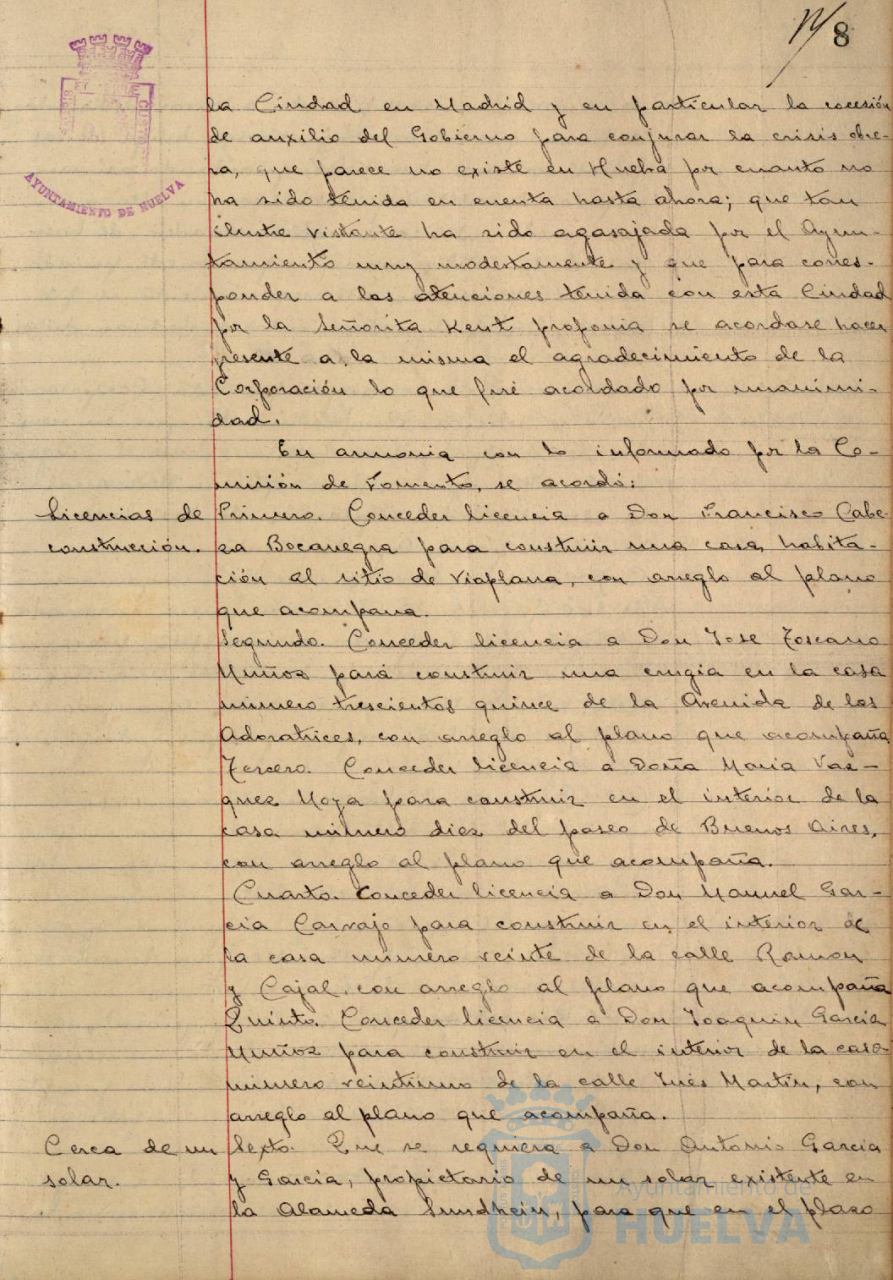 8
AYUNTAMIENTO DE HUELVA
la Ciudad en Madrid y en particular la cocesión
de auxilio del Gobierno para conjurar la crisis obre-
ra, que parece no existe en Huelva por cuanto no
ha sido tenida en cuenta hasta ahora; que tan
ilustre visitante ha sido agasajada por el Ayun-
tamiento muy modestamente y que para corres-
ponder a las atenciones tenida con esta Ciudad
por la Señorita Kent proponia se acordase hacer
presente a la misma el agradecimiento de la
Corporación lo que fué acordado por unanimi-
dad.
En armonia con lo informado por la Co-
misión de Fomento, se acordó:
Licencias de
construcción.
Primero. Conceder licencia a Don Francisco Cabe-
za Bocanegra para construir una casa habita-
ción al sitio de Viaplana, con arreglo al plano
que acompaña.
Segundo. Conceder licencia a Don Jose Toscano
Muñoz para construir una crugia en la casa
número trescientos quince de la Avenida de las
Adoratrices, con arreglo al plano que acompaña
Tercero. Conceder licencia a Doña Maria Vaz-
quez Moya para construir en el interior de la
casa número diez del paseo de Buenos Aires,
con arreglo al plano que acompaña.
Cuarto. Conceder licencia a Don Manuel Gar-
cia Carvajo para construir en el interior de
la casa número veinte de la calle Ramon
y Cajal, con arreglo al plano que acompaña
Quinto. Conceder licencia a Don Joaquin Garcia
Muñoz para construir en el interior de la casa
número veintiuno de la calle Inés Martin, con
arreglo al plano que acompaña.
Cerca de un
solar.
Sexto. Que se requiera a Don Antonio Garcia
y Garcia, propietario de un solar existente en
la Alameda Sundhein, para que en el plazo
Ayuntamiento de
HUELVA